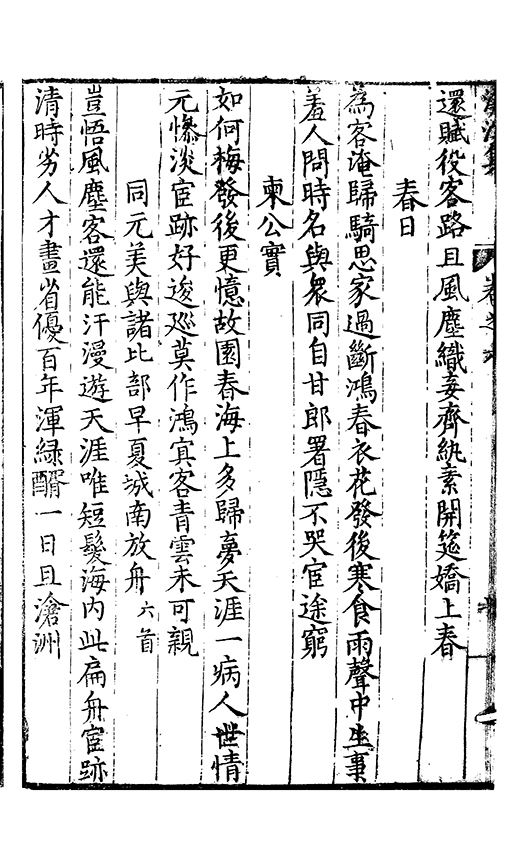 還賦役客路且風塵織妾齊紈素開筵嬌上春
春日
為客淹歸騎思家過斷鴻春衣花發後寒食雨聲中生事
羞人問時名與衆同自甘郎署隱不哭宦途窮
柬公實
如何梅發後更憶故園春海上多歸夢天涯一病人世情
元慘淡宦跡好逡巡莫作鴻賓客青雲未可親
同元美與諸比部早夏城南放舟六首
豈悟風塵客還能汗漫遊天涯唯短鬢海內此扁舟宦跡
清時劣人才畫省優百年渾綠醑一日且滄洲